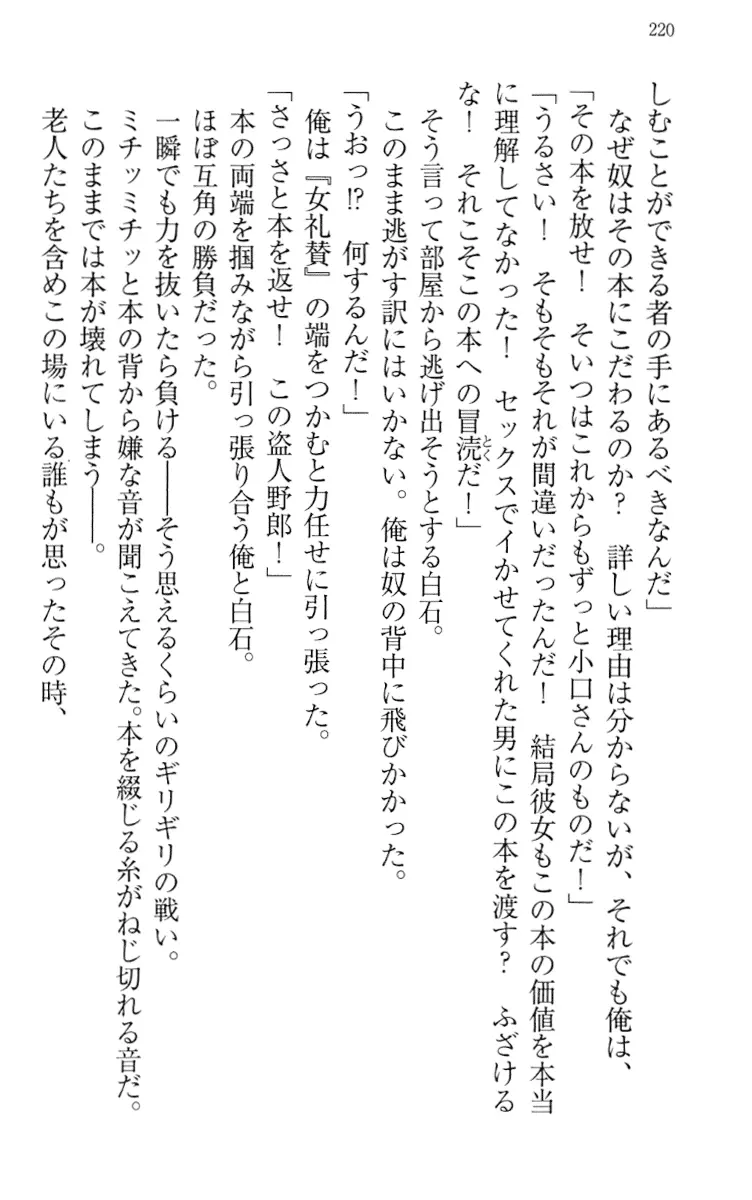 220
しむことができる者の手にあるべきなんだ」
　なぜ奴はその本にこだわるのか？　詳しい理由は分からないが、それでも俺は、
「その本を放せ！　そいつはこれからもずっと小口さんのものだ！」
「うるさい！　そもそもそれが間違いだったんだ！　結局彼女もこの本の価値を本当
に理解してなかった！　セックスでイかせてくれた男にこの本を渡す？　ふざける
な！　それこそこの本への冒涜とくだ！」
　そう言って部屋から逃げ出そうとする白石。
　このまま逃がす訳にはいかない。俺は奴の背中に飛びかかった。
「うおっ!?　何するんだ！」
　俺は『女礼賛』の端をつかむと力任せに引っ張った。
「さっさと本を返せ！　この盗人野郎！」
　本の両端を掴みながら引っ張り合う俺と白石。
　ほぼ互角の勝負だった。
　一瞬でも力を抜いたら負ける――そう思えるくらいのギリギリの戦い。
　ミチッミチッと本の背から嫌な音が聞こえてきた。本を綴じる糸がねじ切れる音だ。
　このままでは本が壊れてしまう――。
　老人たちを含めこの場にいる誰もが思ったその時、